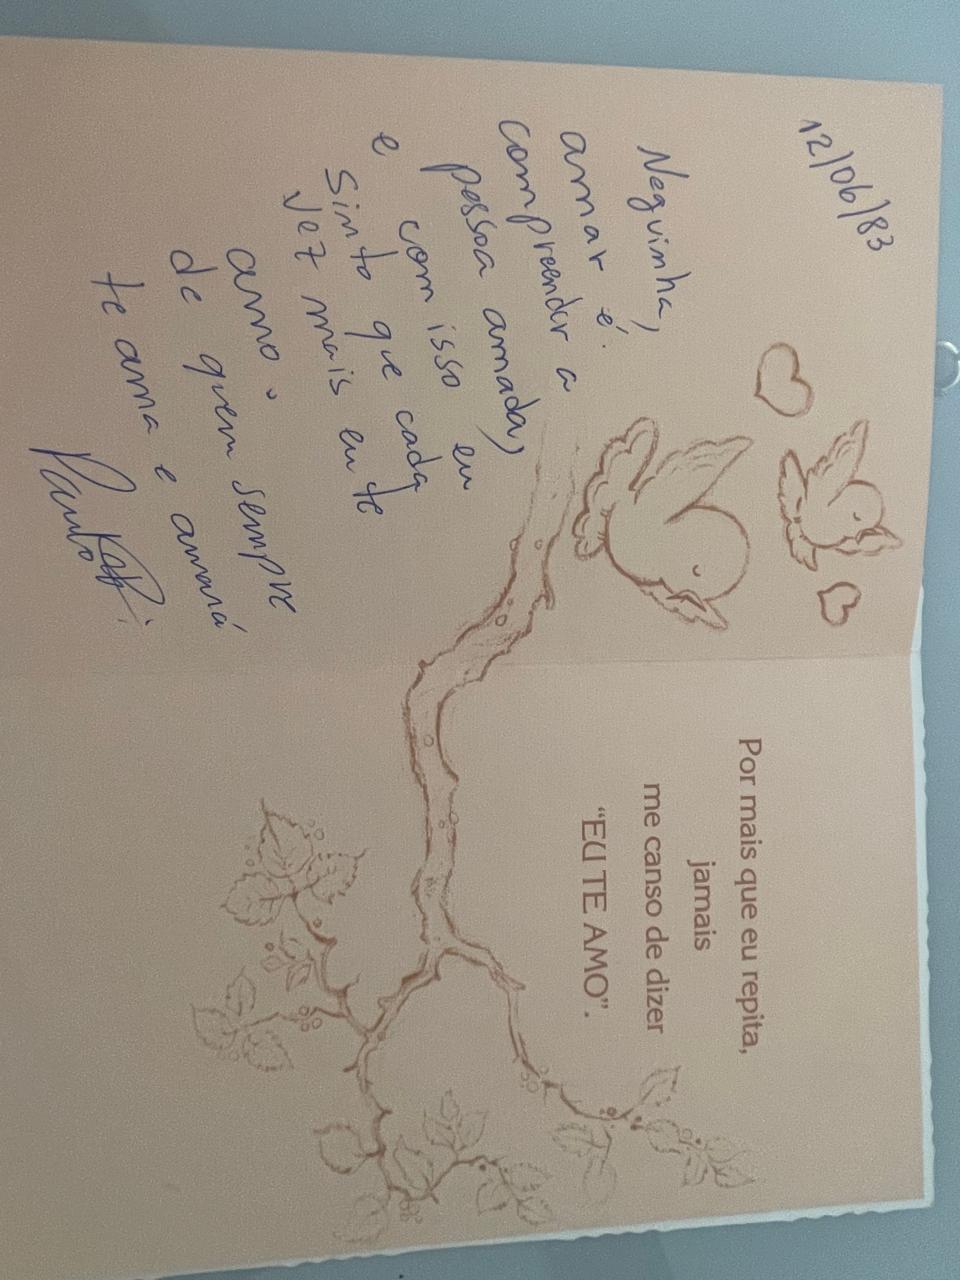 12/06/83
Neguinha,
amar é.
compreender a
pessoa amada,
e com isso eu
Sinto que cada
vez mais eu te
amo.
de quem sempre
te ama e amará
Paulo
Por mais que eu repita,
jamais
me canso de dizer
“EU TE AMO”.